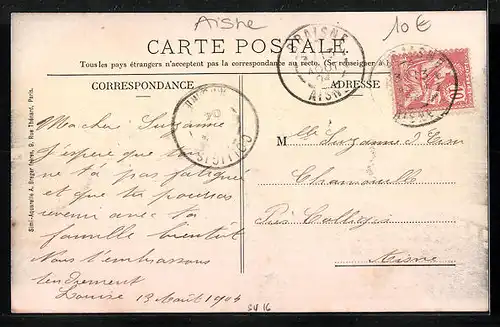 Aisne
10€
CARTE POSTALE
Tous les pays étrangers n'acceptent pas la correspondance au recto. (Se renseigner à
CORRESPONDANCE
ADRESSE
BRAISNE
AOUT
04
AISNE
BRAISNE
AISNE
COLLIGIS
AISNE
04
Ma chère Suzanne
J'espère que
ne t'a pas fatiguée
et que tu pourras
revenir avec ta
famille bientôt
Nous t'embrassons
tendrement
Louise 13 Août 1904
M lle Suzanne
Chamouille
Près Colligis
Aisne
Simi-Aquarelle A. Breger frères, 9, Rue Thénard, Paris.
SU 16